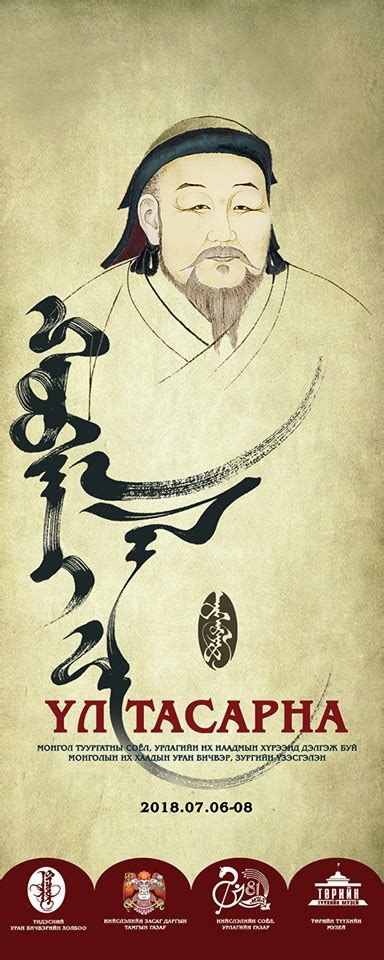 ҮЛ ТАСАРНА
МОНГОЛ ТУУРГАТНЫ СОЁЛ, УРЛАГИЙН ИХ НААДМЫН ХҮРЭЭНД ДЭЛГЭЖ БУЙ
МОНГОЛЫН ИХ ХААДЫН УРАН БИЧВЭР, ЗУРГИЙН ҮЗЭСГЭЛЭН
2018.07.06-08
81
ТӨРИЙН
ТҮҮХИЙН МУЗЕЙ
ҮНДЭСНИЙ
УРАН БИЧВЭРИЙН ХОЛБОО
НИЙСЛЭЛИЙН ЗАСАГ ДАРГЫН
ТАМГЫН ГАЗАР
НИЙСЛЭЛИЙН СОЁЛ,
УРЛАГИЙН ГАЗАР
ТӨРИЙН ТҮҮХИЙН
МУЗЕЙ